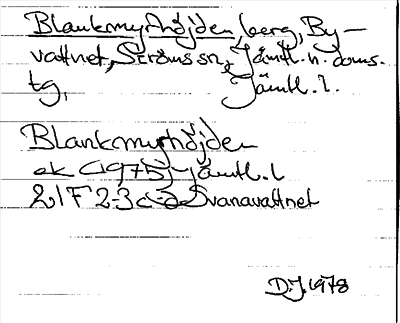 Blankmyrhöjden, berg, By-
vattnet, Ströms sn, Jämtl. n. doms.
tg, Jämtl. l.
Blankmyrhöjden
ek (1975) Jämtl. l
21F 2-3 c-d Svanavattnet
D.J. 1978